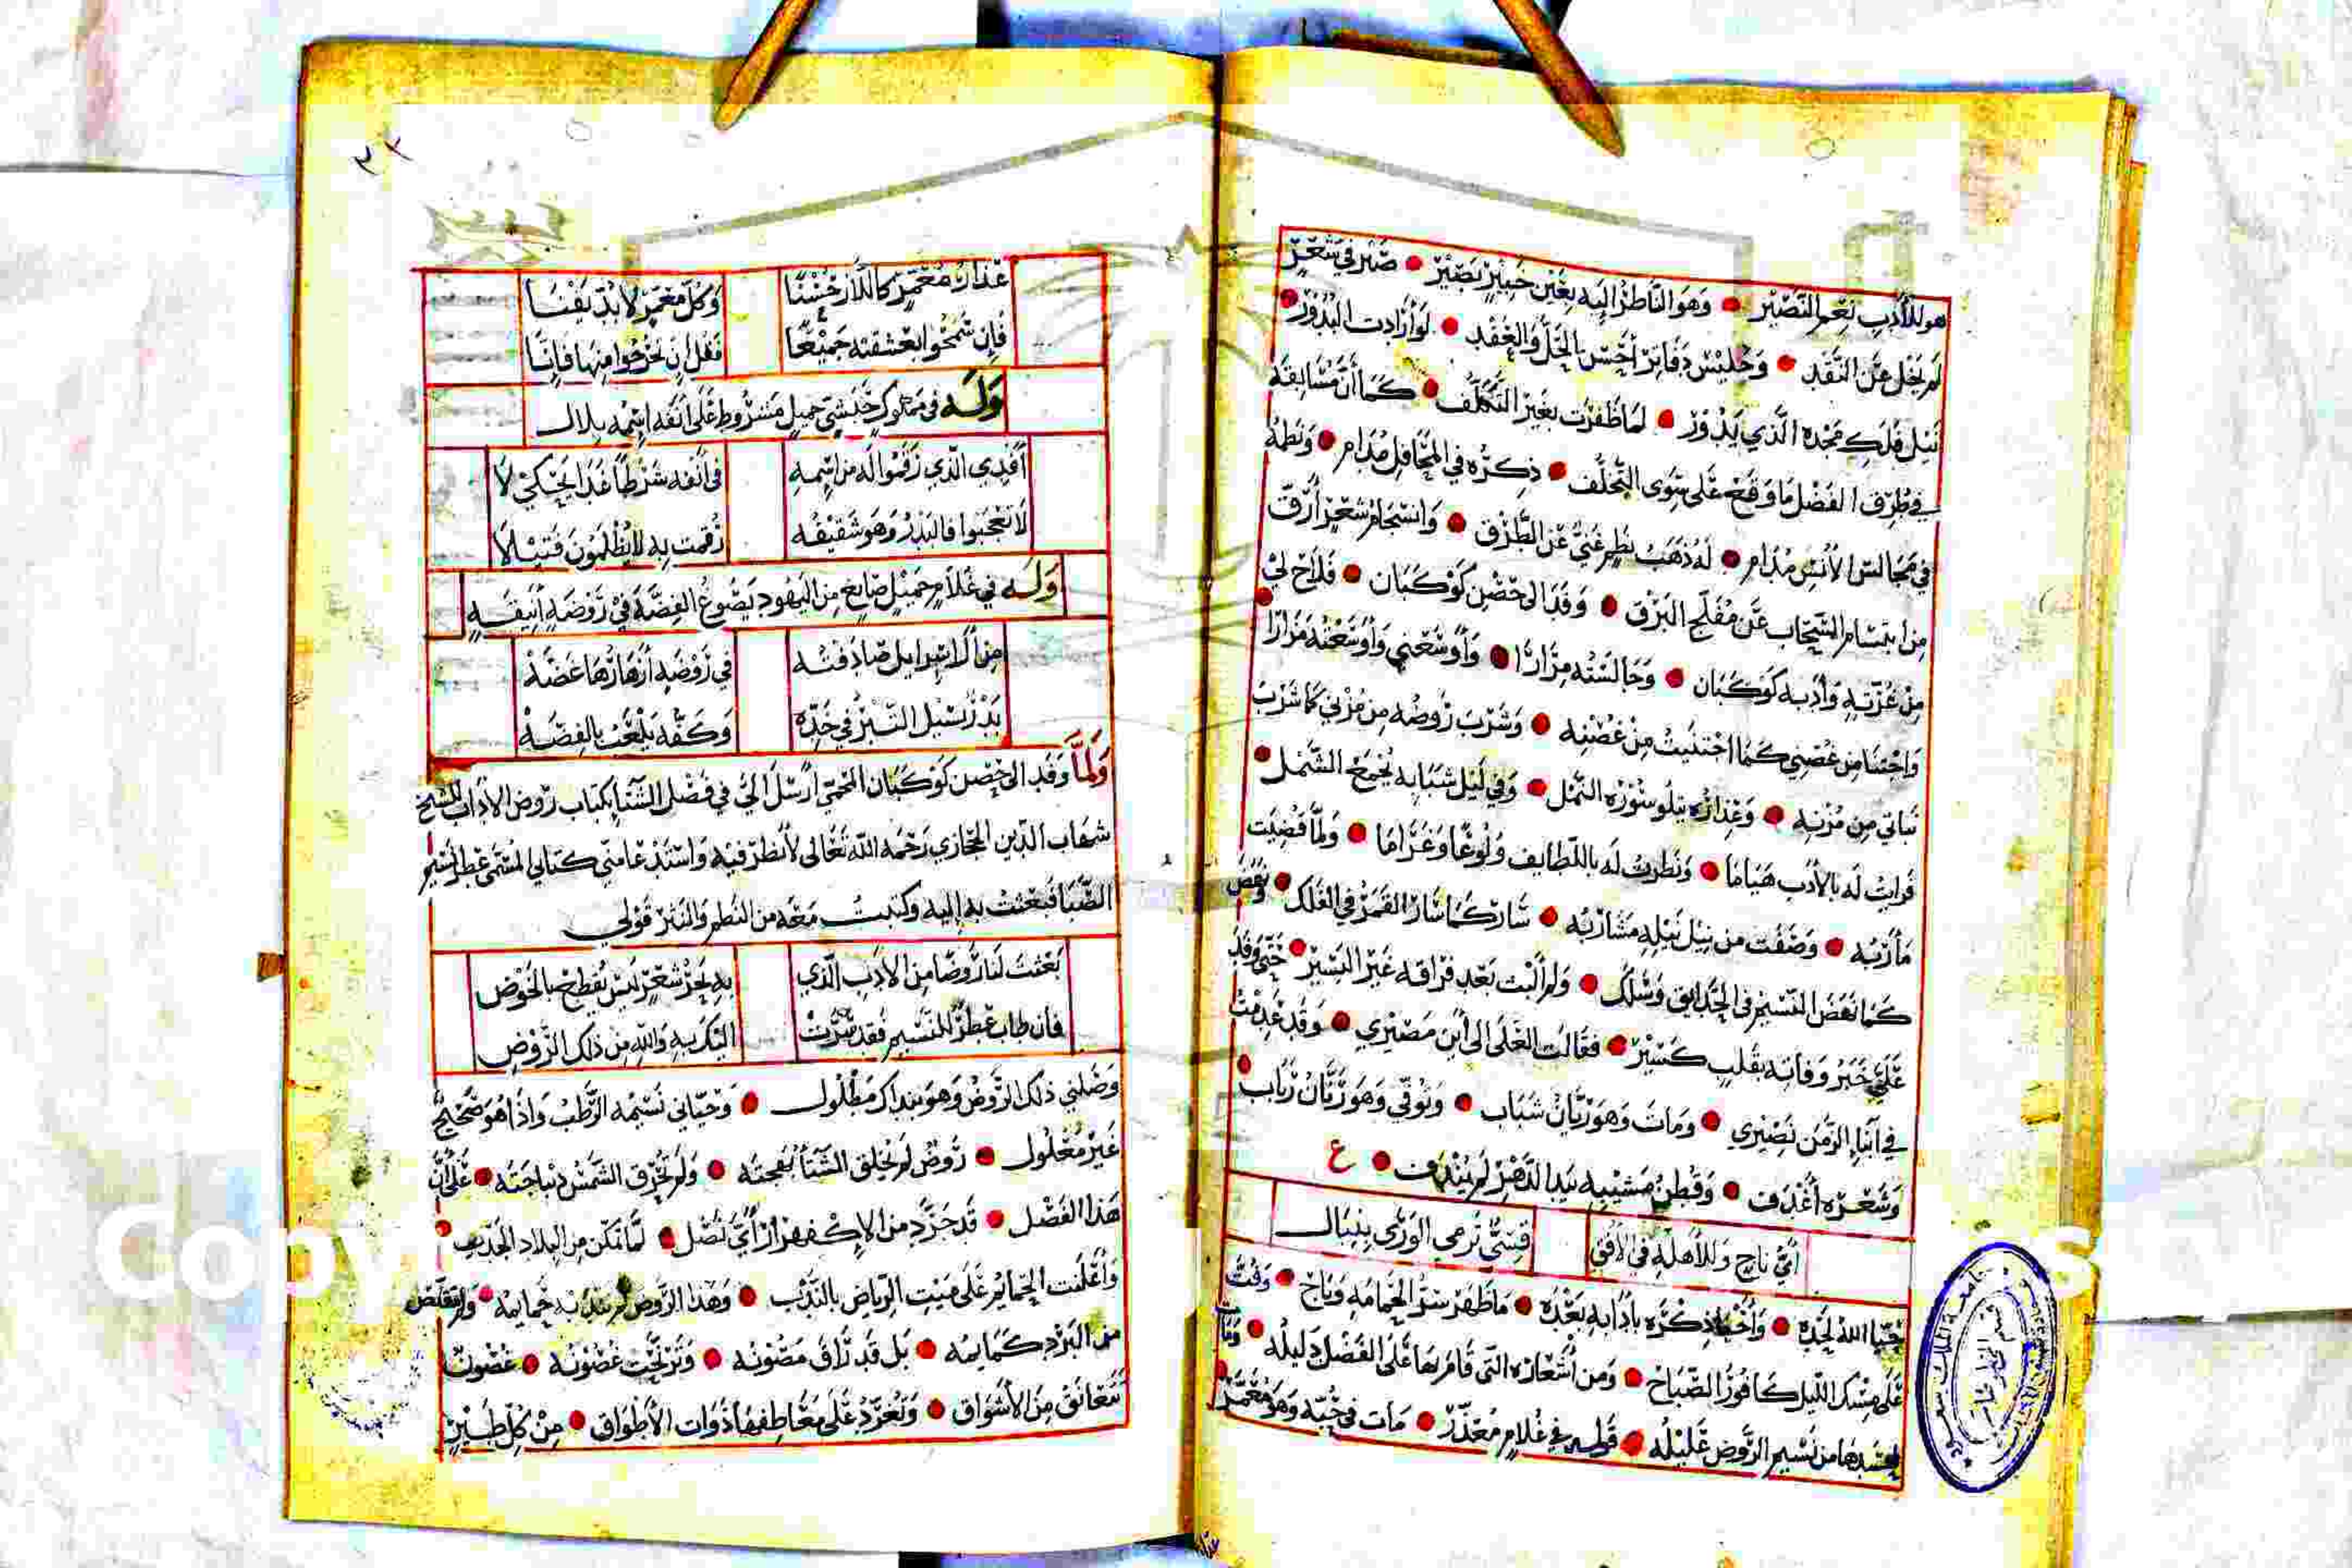 هو للأدب نعم النصير • وهو الناظر إليه بعين خبير بصير • صبر في شعر
لم يخل عن النقد • وجليس دفاتر أحسن بالحل والعقد • لو أرادت البدور
نيل فلك مجده الذي يدور • لما ظفرت بغير التكلف • كما أن مسابقه
في طرف الفضل ما وقع على سوى التخلف • ذكره في المحافل مدام • ونظمه
في مجالس الأنس مدام • له ذهب نظم غني عن الطرف • وانسجام شعر أرق
من ابتسام السحاب عن مفلج البرق • وفد الى حصن كوكبان • فلاح لي
من غرته وأدبه كوكبان • وجالسته مرارا • وأوسعني وأوسعته مزارا
واجتنا من غصني كما اجتنيت من غصنه • وشرب روضه من مزني كما شرب
نباتي من مزنه • وعذاره يتلو سورة النمل • وفي ليل شبابه يجمع الشمل
فرايت له بالأدب هياما • ونظرت له باللطايف ولوعا وغراما • ولما قضيت
مآربه • وصفت من نيل نيله مشاربه • سار كما سار القمر في الفلك • ونفض
كما نفض النسيم في الحدايق وسلك • ولم ألبث بعد فراقه غير اليسير • حتى وفد
علي خبر وفاته بقلب كسير • فقالت العلى الى أين مصيري • وقد عدمت
في أبناء الزمن نصيري • ومات وهو ريان شباب • وتوفي وهو ريان رباب
وشعره أغدف • وقطن مشيبه بيد الدهر لم يندف • ع
أي ناج وللأهلة في الأفق قسي ترمي الورى بنبال
حيا الله لحده • وأحيا ذكره بآدابه بعده • ما ظهر سر الحمامه وباح • وفت
على مسك الليل كافور الصباح • ومن أشعاره التي قام بها على الفضل دليله • وبات
يحسدها من نسيم الروض عليله • قوله في غلام معذر • مات في حبه وهو معمر
عذار معمر كالدار حسنا وكل معمر لا بد يفنا
فإن سمحوا بعشقته جميعا فقل إن يخرجوا منها فإنا
وله في مملوك حبشي جميل مشروط على أنفه اسمه بلال
أفدي الذي رقموا له من اسمه في أنفه شرطا غدا يحكي لا
لا تعجبوا فالبدر وهو شقيقه رقمت به لا يظلمون فتيلا
وله في غلام جميل صايغ من اليهود يصوغ الفضة في روضة أنيقه
من آل اسرايل صادفته في روضة أزهارها غضه
بدر يسيل التبر في خده وكفه يلعب بالفضه
ولما وفد الى حصن كوكبان المحمي أرسل الي في فصل الشتا بكتاب روض الآداب للشيخ
شهاب الدين الحجازي رحمه الله تعالى لأنظر فيه واستدعا مني كتابي المسمى عطر نسيم
الصبا فبعثت به إليه وكتبت معه من النظم والنثر قولي
بعثت لنا روضا من الأدب الذي به بحر شعر ليس يقطع بالخوض
فان طاب عطر للنسيم فقد سرت اليك به والله من ذلك الروض
وصلني ذلك الروض وهو بنداك مطلول • وحياني نسيمه الرطب واذا هو صحيح
غير معلول • روض لم يخلق الشتا بهجته • ولم تحرق الشمس ديباجته • على أن
هذا الفصل • قد جرد من الإكفهرار أي نصل • لما تمكن من البلاد الجدب •
وأعلنت الحمايم على ميت الرياض بالندب • وهذا الروض لم يندبه حمايمه • ولم تتقلص
من البرد كمايمه • بل قد راق مصونه • وترنحت غصونه • غصون
تتعانق من الأشواق • وتغرد على معاطفها ذوات الأطواق • من كل طير
جامعة الملك سعود